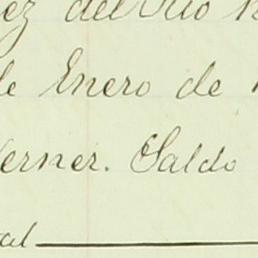 ez del Rio
de Enero de
erner. Saldo
al